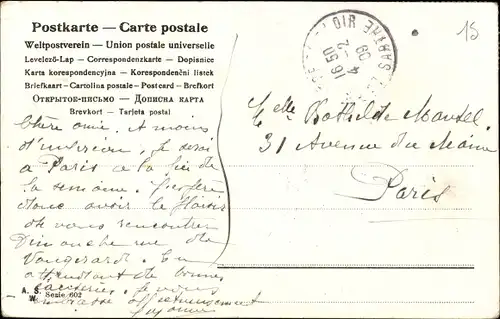 Postkarte — Carte postale
Weltpostverein — Union postale universelle
Levelező-Lap — Correspondenzkarte — Dopisnice
Karta korespondencyjna — Korespondenční lístek
Briefkaart — Cartolina postale — Postcard — Brefkort
Открытое-письмо — Дописна карта
Brevkort — Tarjeta postal
15
LOIR
16 50
4 -2
09
Melle Bathilde Mansel
31 Avenue du Maine
Paris
Chère amie. A moins
d'imprévu, je serai
à Paris à la fin de
la semaine. J'espère
donc avoir le plaisir
de vous rencontrer
Dimanche rue de
Vaugirard. En
attendant de bonnes
causeries, je vous
embrasse affectueusement
A. S.
W. Serie 602